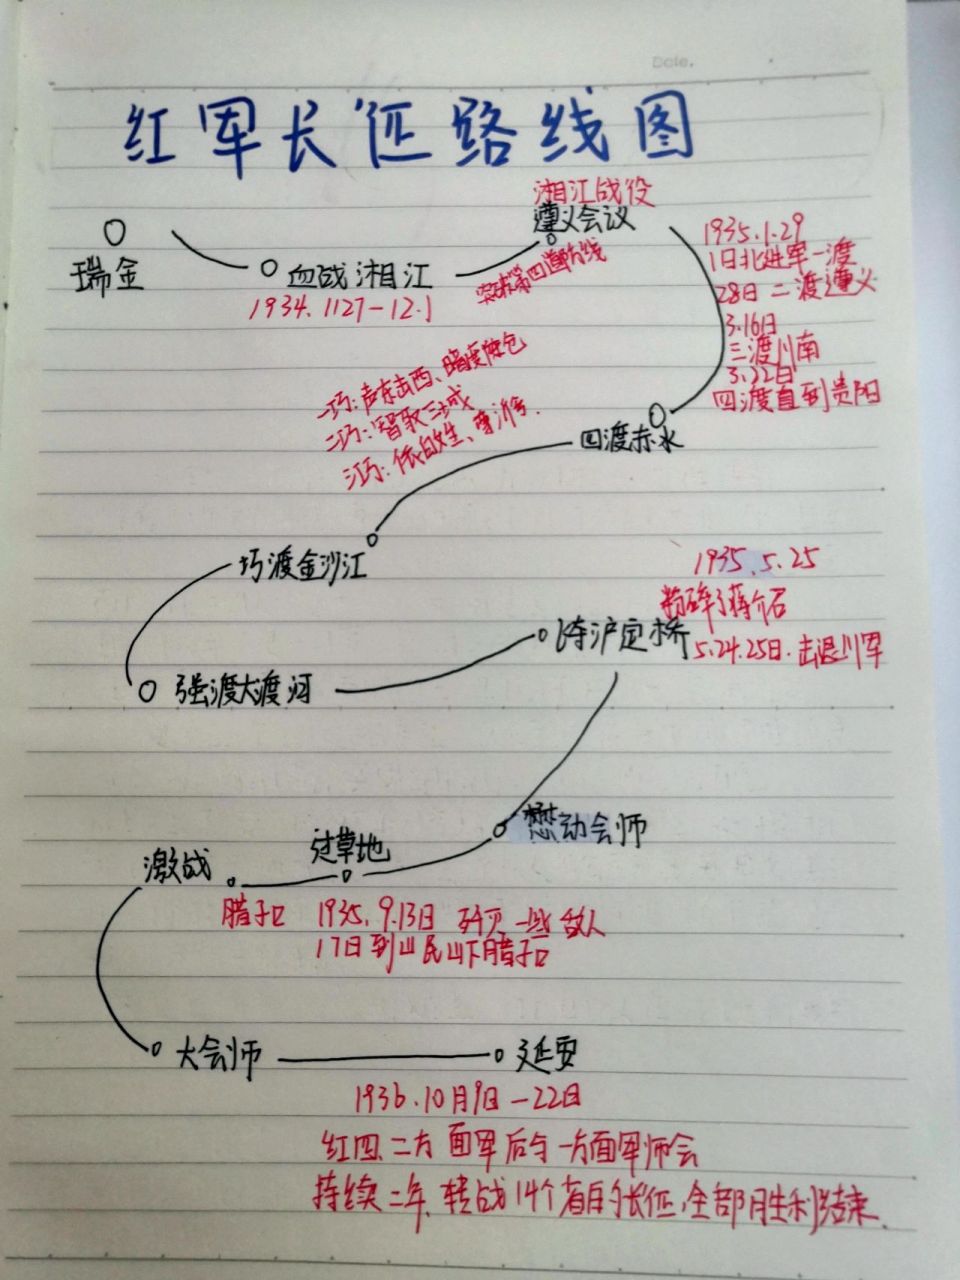 Date.
红军长征路线图
瑞金
血战湘江
1934.1127-12.1
湘江战役
遵义会议
突破第四道防线
1935.1.29
1日北进军一渡
28日二渡遵义
3.16日
三渡川南
3.22日
四渡直到贵阳
四渡赤水
一巧:声东击西、暗度陈仓
二巧:智取三城
三巧:依百姓、
巧渡金沙江
强渡大渡河
飞夺泸定桥
1935.5.25
粉碎了蒋介石
5.24.25日.击退川军
懋动会师
过草地
激战
腊子口
1935.9.13日 歼灭一些敌人
17日到岷山下腊子口
大会师
延安
1936.10月9日-22日
红四、二方面军后与一方面军师会
持续二年,转战14个省的长征,全部胜利结束.